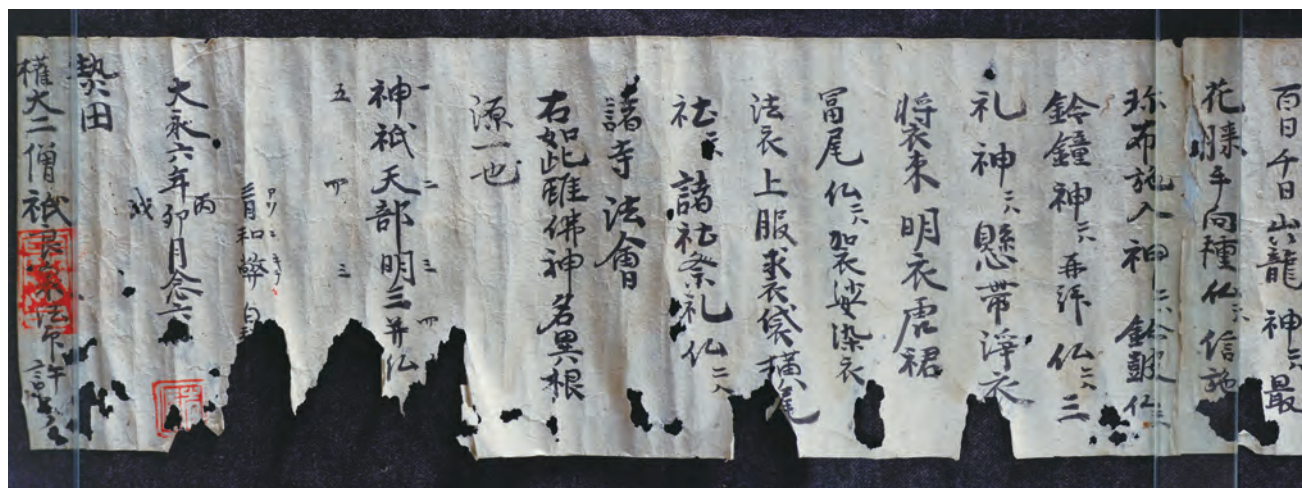 百日千日山籠神ニハ最
花賝手向種仏ニハ信施
珎布施入神ニハ鈴皷仏ニハ
鈴鐘神ニハ再拝仏ニハ三
礼神ニハ懸帯浄衣
将衣束明衣唐裙
冨尾仏ニハ加裟染衣
法衣上服衣袋横尾
社ニハ諸社祭礼仏ニハ
諸寺法會
右如此雖佛神名異根
源一也
神祇天部明三并仏
一 二 三 四
五 四 三
青和幣白
大永六年卯月念六
丙 戌
𫝆田
權大二僧祇